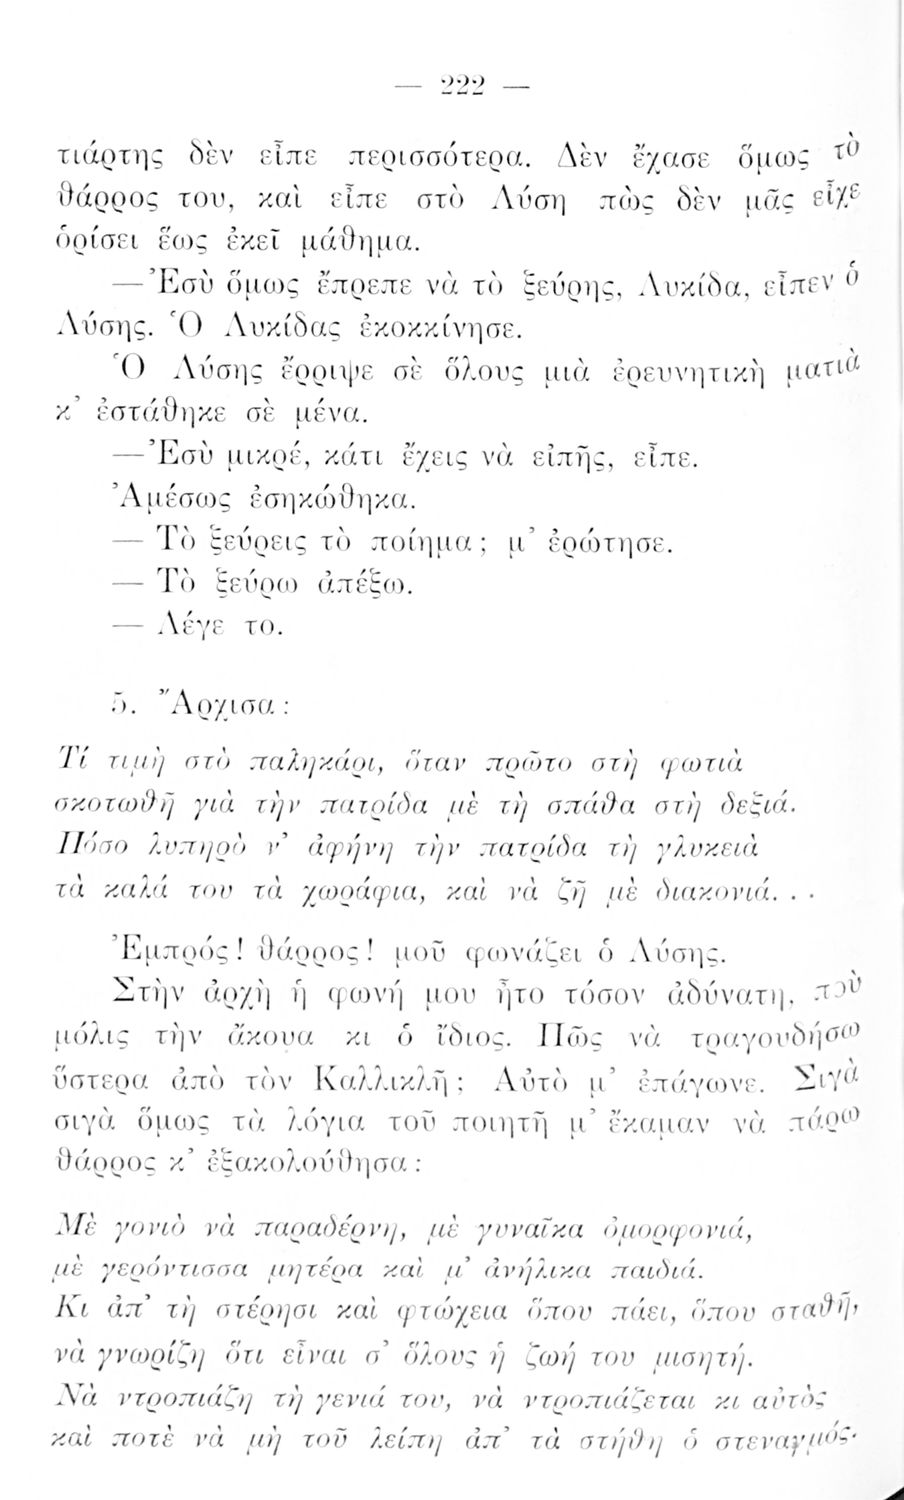 — 222 —
τιάρτης δὲν εἶπε περισσότερα. Δὲν ἔχασε ὅμως τὸ
θάρρος του, καὶ εἶπε στὸ Λύση πὼς δὲν μᾶς εἶχε
ὁρίσει ἕως ἐκεῖ μάθημα.
—Ἐσὺ ὅμως ἔπρεπε νὰ τὸ ξεύρης, Λυκίδα, εἶπεν ὁ
Λύσης. Ὁ Λυκίδας ἐκοκκίνησε.
Ὁ Λύσης ἔρριψε σὲ ὅλους μιὰ ἐρευνητικὴ ματιὰ
κ᾿ ἐστάθηκε σὲ μένα.
—Ἐσὺ μικρέ, κάτι ἔχεις νὰ εἰπῆς, εἶπε.
Ἀμέσως ἐσηκώθηκα.
— Τὸ ξεύρεις τὸ ποίημα; μ᾿ ἐρώτησε.
— Τὸ ξεύρω ἀπέξω.
— Λέγε το.
5. Ἄρχισα:
Τί τιμὴ στὸ παληκάρι, ὅταν πρῶτο στὴ φωτιὰ
σκοτωθῆ γιὰ τὴν πατρίδα μὲ τὴ σπάθα στὴ δεξιά.
Πόσο λυπηρὸ ν᾿ ἀφήνη τὴν πατρίδα τὴ γλυκειὰ
τὰ καλά του τὰ χωράφια, καὶ νὰ ζῆ μὲ διακονιά. . .
Ἐμπρός! θάρρος! μοῦ φωνάζει ὁ Λύσης.
Στὴν ἀρχὴ ἡ φωνή μου ἦτο τόσον ἀδύνατη, ποὺ
μόλις τὴν ἄκουα κι ὁ ἴδιος. Πῶς νὰ τραγουδήσω
ὕστερα ἀπὸ τὸν Καλλικλῆ; Αὐτὸ μ᾿ ἐπάγωνε. Σιγὰ
σιγὰ ὅμως τὰ λόγια τοῦ ποιητῆ μ᾿ ἔκαμαν νὰ πάρω
θάρρος κ᾿ ἐξακολούθησα:
Μὲ γονιὸ νὰ παραδέρνη, μὲ γυναῖκα ὀμορφονιά,
μὲ γερόντισσα μητέρα καὶ μ᾿ ἀνήλικα παιδιά.
Κι ἀπ᾿ τὴ στέρησι καὶ φτώχεια ὅπου πάει, ὅπου σταθῆ,
νὰ γνωρίζη ὅτι εἶναι σ᾿ ὅλους ἡ ζωή του μισητή.
Νὰ ντροπιάζη τὴ γενιά του, νὰ ντροπιάζεται κι αὐτὸς
καὶ ποτὲ νὰ μὴ τοῦ λείπη ἀπ᾿ τὰ στήθη ὁ στεναγμός.